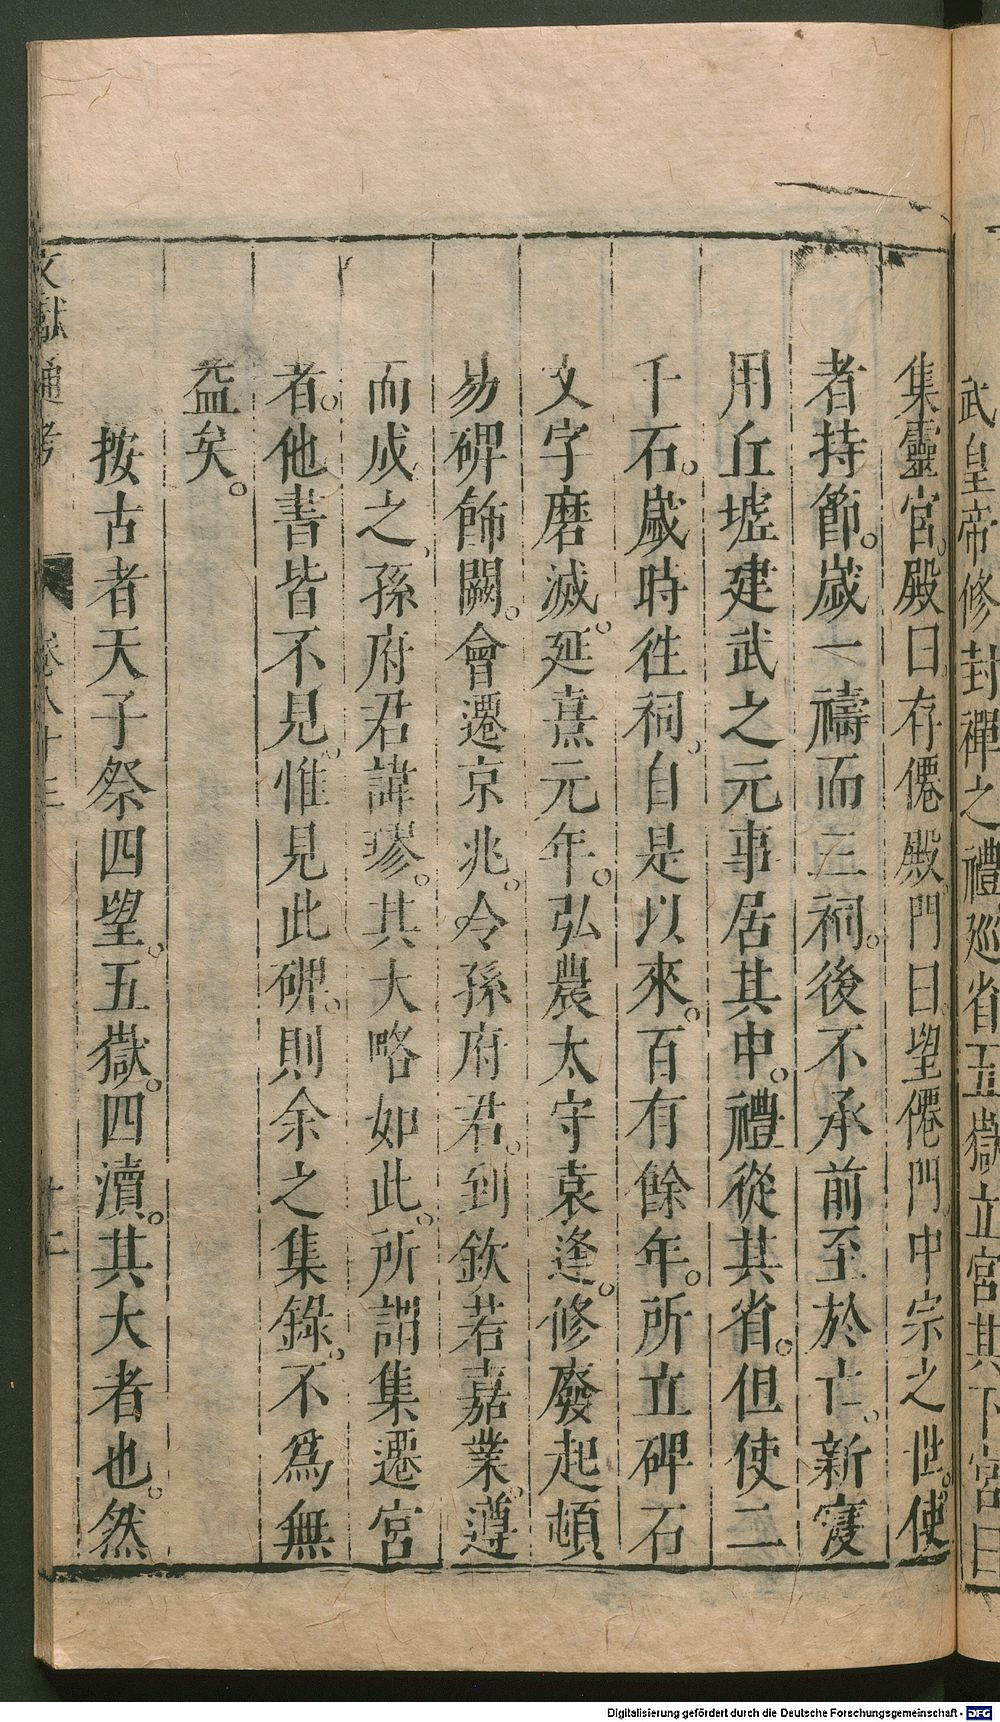 武皇帝修封禪之禮廵省五嶽立宮其下宮曰
集靈宮。殿曰存僊殿。門曰望僊門中宗之世。使
者持節。歲一禱而三祠。後不承前至於亡。新寖
用丘墟建武之元事居其中。禮從其省。但使二
千石。歲時徃祠。自是以來。百有餘年。所立碑石
文字磨滅。延熹元年。弘農太守袁逢。修廢起頓
易碑飾闕。會遷京兆。令孫府君。到欽若嘉業。遵
而成之、孫府君諱璆。其大略如此。所謂集遷宮
者。他書皆不見。惟見此碑。則余之集錄。不為無
益矣。
按古者天子祭四望。五嶽。四瀆。其大者也。然
文獻通考
卷八十三
十二
Digitalisierung gefördert durch die Deutsche Forschungsgemeinschaft - DFG